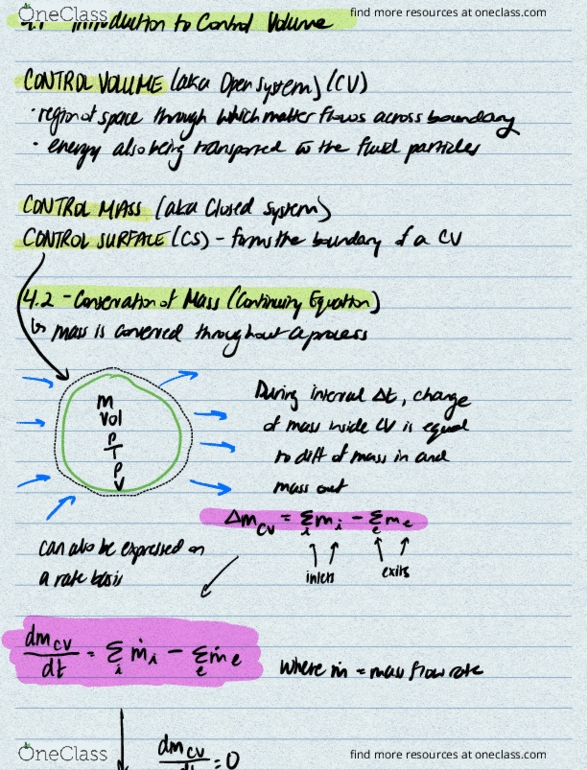 OneClass
find more resources at oneclass.com
4.1 Introduction to Control Volume
CONTROL VOLUME (aka Open system) (CV)
· region of space through which matter flows across boundary
· energy also being transported w the fluid particles
CONTROL MASS (aka Closed system)
CONTROL SURFACE (CS) - forms the boundary of a CV
4.2 - Conservation of Mass (Continuity Equation)
↳ mass is conserved throughout a process
m
Vol
P
T
ρ
V
During interval Δt, change
of mass inside CV is equal
to diff of mass in and
mass out
Δm_CV = Σ_i m_i - Σ_e m_e
inlets
exits
can also be expressed on
a rate basis
dm_CV/dt = Σ_i ṁ_i - Σ_e ṁ_e
where ṁ = mass flow rate
dm_CV/dt = 0
OneClass
find more resources at oneclass.com